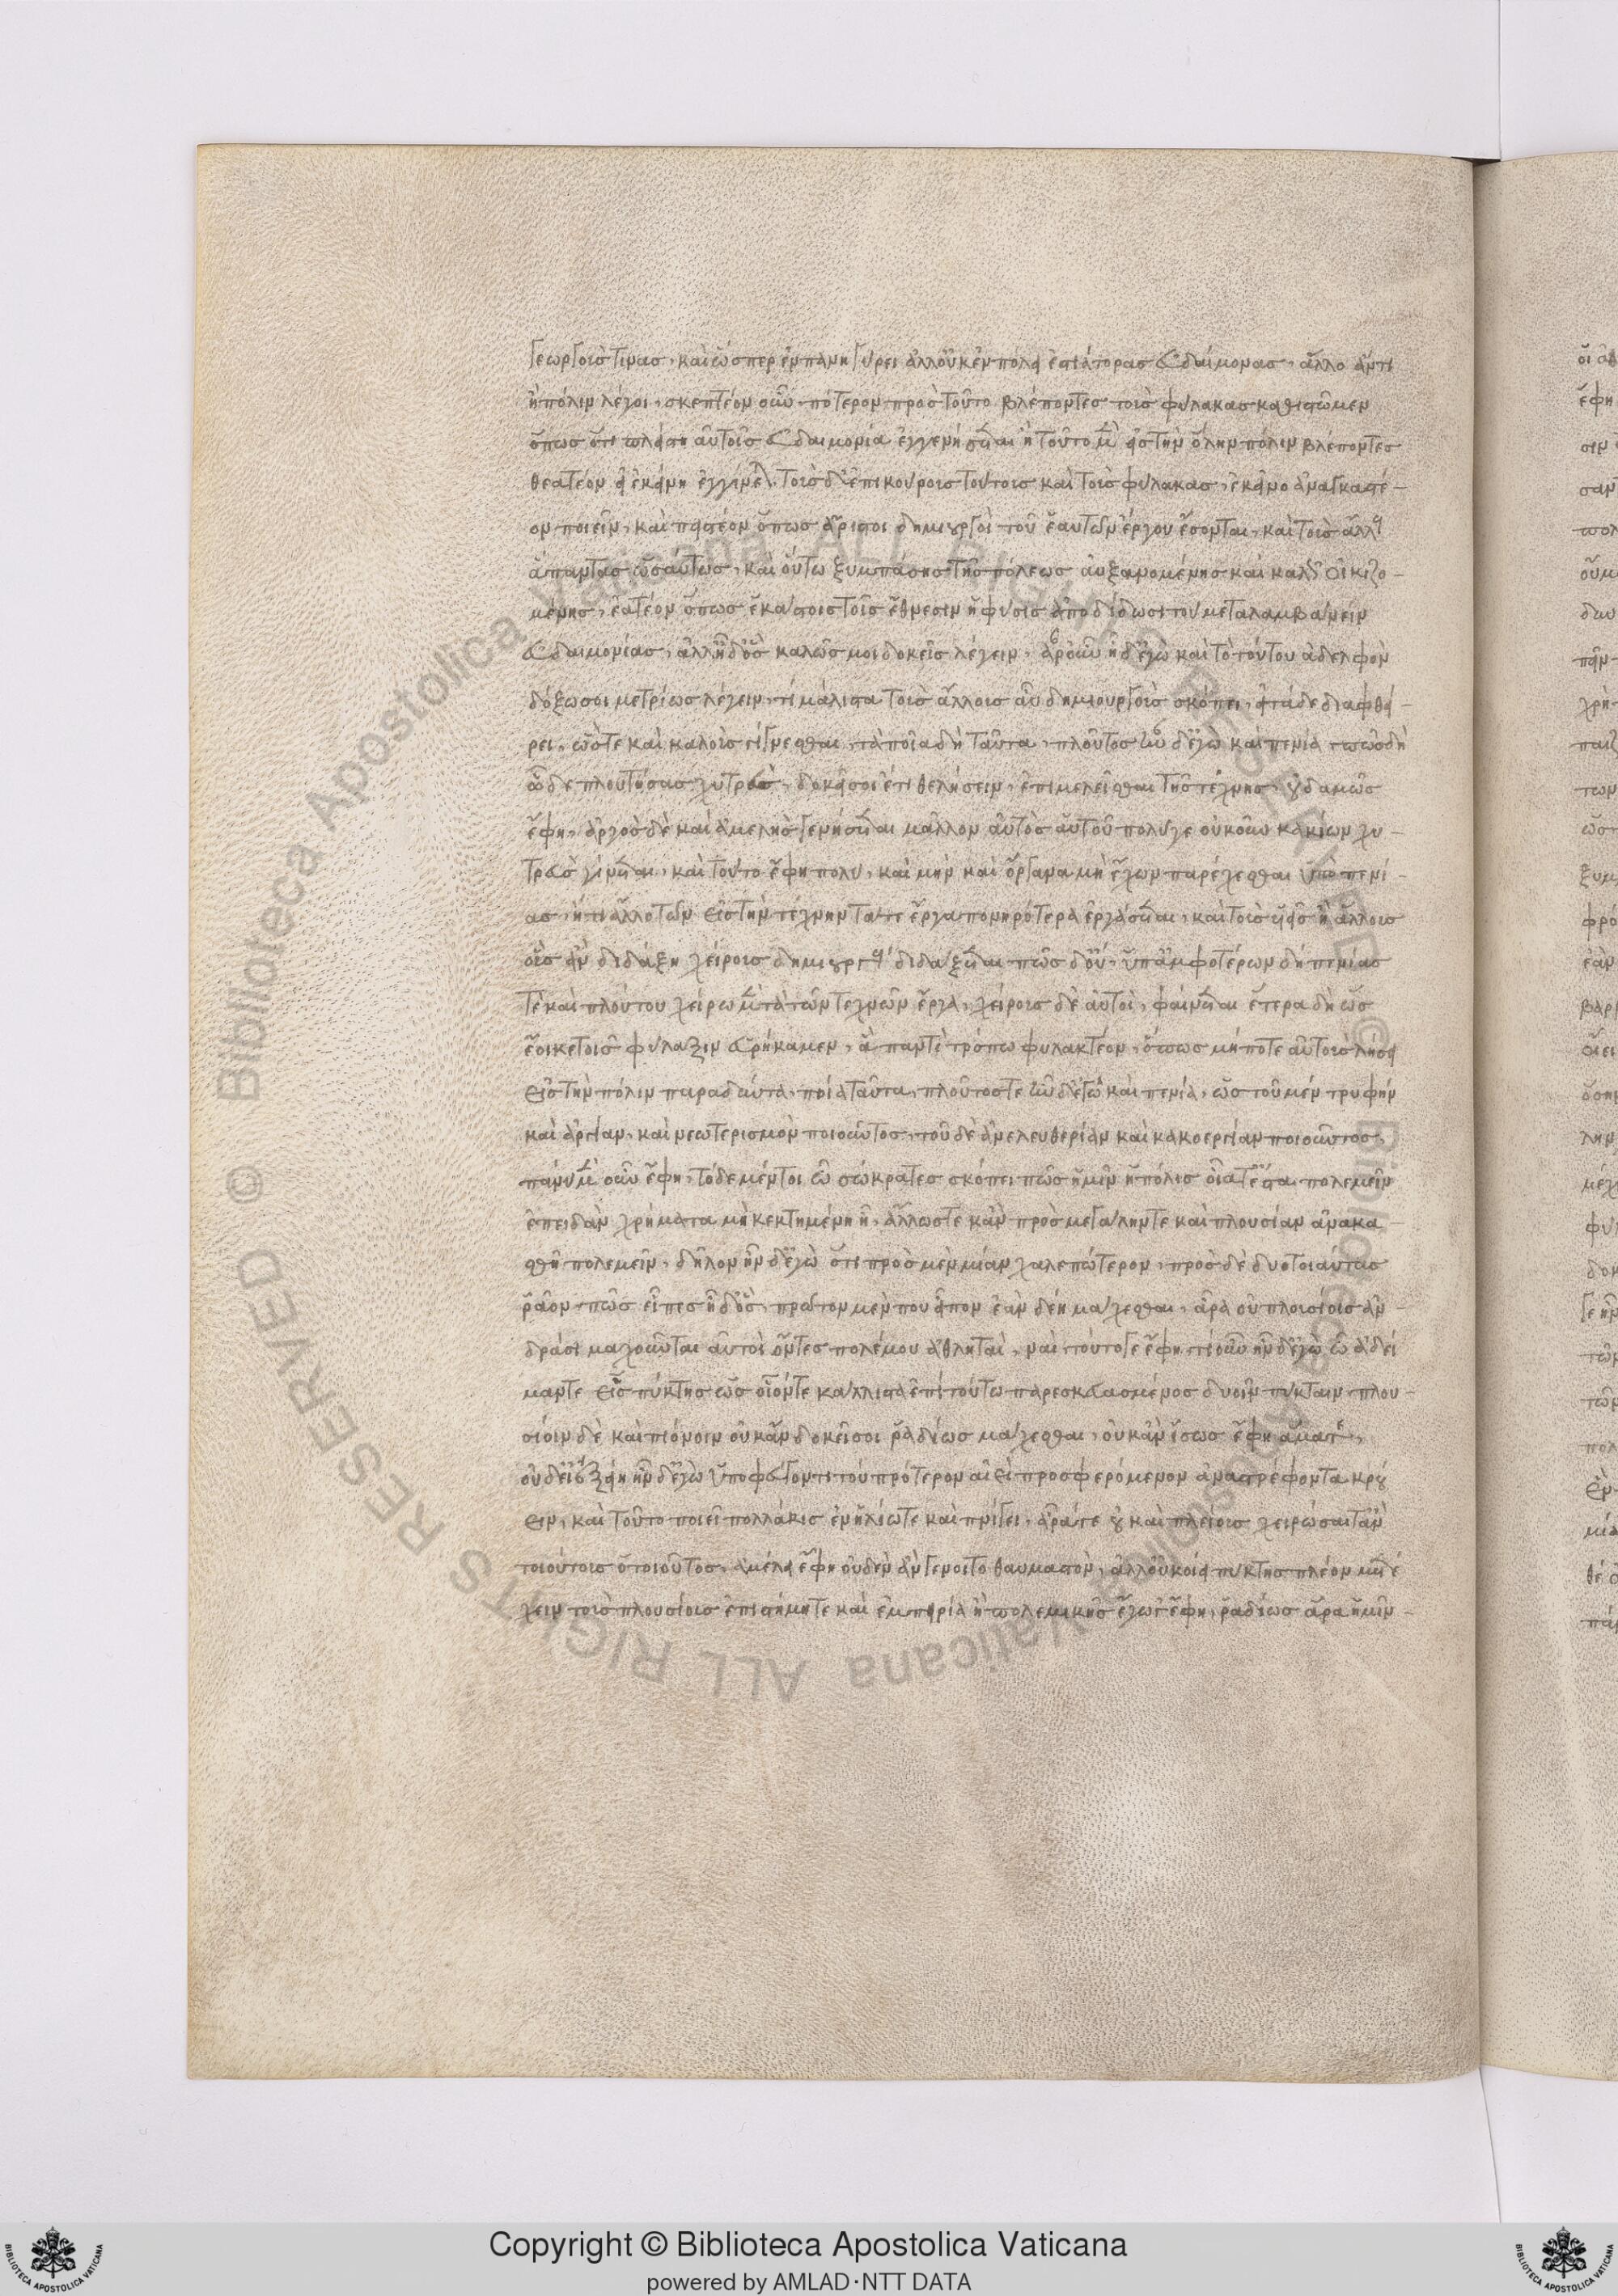 γεωργοὺς τινασ, καὶ ὥσπερ ἐν πανηγύρει ἀλλ' οὐκ ἐν πόλει ἑστιάτορας εὐδαίμονας, ἄλλο ἄν τι
ἢ πόλιν λέγοι, σκεπτέον οὖν, πότερον πρὸς τοῦτο βλέποντες τοὺς φύλακας καθιστῶμεν
ὅπως ὅτι πλείστη αὐτοῖς εὐδαιμονία ἐγγενήσεται ἢ τοῦτο μὲν εἰς τὴν ὅλην πόλιν βλέποντες
θεατέον εἰ ἐκείνη ἐγγίνεται. τοὺς δ' ἐπικούρους τούτους καὶ τοὺς φύλακας, ἐκεῖνο ἀναγκαστέ-
ον ποιεῖν, καὶ πειστέον ὅπως ἄριστοι δημιουργοὶ τοῦ ἑαυτῶν ἔργου ἔσονται, καὶ τοὺς ἄλλους
ἅπαντας ὡσαύτως, καὶ οὕτω ξυμπάσης τῆς πόλεως αὐξανομένης καὶ καλῶς οἰκιζο-
μένης, ἐατέον ὅπως ἑκάστοις τοῖς ἔθνεσιν ἡ φύσις ἀποδίδωσι τοῦ μεταλαμβάνειν
εὐδαιμονίας, ἀλλ' ἦ δ' ὃς καλῶς μοι δοκεῖς λέγειν, ἆρ' οὖν ἦ δ' ἐγὼ καὶ τὸ τούτου ἀδελφὸν
δόξω σοι μετρίως λέγειν, τί μάλιστα τοὺς ἄλλους αὖ δημιουργοὺς σκόπει, εἰ τάδε διαφθεί-
ρει, ὥστε καὶ κακοὺς γίγνεσθαι, τὰ ποῖα δὴ ταῦτα, πλοῦτος ἦν δ' ἐγὼ καὶ πενία, πῶς δὴ
ὧδε πλουτήσας χυτρεὺς, δοκεῖ σοι ἔτι θελήσειν, ἐπιμελεῖσθαι τῆς τέχνης, οὐδαμῶς
ἔφη, ἀργὸς δὲ καὶ ἀμελὴς γενήσεται μᾶλλον αὐτὸς αὑτοῦ πολύ γε οὐκοῦν κακίων χυ-
τρεὺς γίνεται, καὶ τοῦτο ἔφη πολύ, καὶ μὴν καὶ ὄργανα μὴ ἔχων παρέχεσθαι ὑπὸ πενί-
ας, ἤ τι ἄλλο τῶν εἰς τὴν τέχνην τά τε ἔργα πονηρότερα ἐργάσεται, καὶ τοὺς υἱεῖς ἢ ἄλλους
οὓς ἂν διδάξῃ χείρους δημιουργοὺς διδάξεται πῶς δ' οὔ, ὑπ' ἀμφοτέρων δὴ πενίας
τε καὶ πλούτου χείρω μὲν τὰ τῶν τεχνῶν ἔργα, χείρους δὲ αὐτοί, φαίνεται ἕτερα δὴ ὡς
ἔοικε τοῖς φύλαξιν εὑρήκαμεν, ἃ παντὶ τρόπω φυλακτέον, ὅπως μήποτε αὐτοὺς λήσει
εἰς τὴν πόλιν παραδύντα, ποῖα ταῦτα, πλοῦτός τε ἦν δ' ἐγὼ καὶ πενία, ὡς τοῦ μὲν τρυφὴν
καὶ ἀργίαν, καὶ νεωτερισμὸν ποιοῦντος, τοῦ δὲ ἀνελευθερίαν καὶ κακοεργίαν ποιοῦντος,
πάνυ μὲν οὖν ἔφη, τόδε μέντοι ὦ σώκρατες σκόπει πῶς ἡμῖν ἡ πόλις οἵα τ' ἔσται πολεμεῖν
ἐπειδὰν χρήματα μὴ κεκτημένη ἦ, ἄλλως τε κἂν πρὸς μεγάλην τε καὶ πλουσίαν ἀνακα-
σθῆ πολεμεῖν, δῆλον ἦν δ' ἐγὼ ὅτι πρὸς μὲν μίαν χαλεπώτερον, πρὸς δὲ δύο τοιαύτας
ῥᾶον, πῶς εἶπες ἦ δ' ὅς, πρῶτον μέν που εἶπον ἐὰν δέῃ μάχεσθαι, ἆρα οὐ πλουσίοις ἀν-
δράσι μαχοῦνται αὐτοὶ ὄντες πολέμου ἀθληταί, ναὶ τοῦτό γε ἔφη, τί οὖν ἦν δ' ἐγὼ ὦ ἀδεί
μαντε εἷς πύκτης ὡς οἷόν τε κάλλιστα ἐπὶ τούτω παρεσκευασμένος δυοῖν πύκταιν, πλου-
σίοιν δὲ καὶ πιόνοιν οὐκ ἂν δοκεῖ σοι ῥᾳδίως μάχεσθαι, οὐκ ἂν ἴσως ἔφη ἅμα γε,
οὐδ' εἰ ἐξείη ἦν δ' ἐγὼ ὑποφεύγοντι τὸν πρότερον αἰεὶ προσφερόμενον ἀναστρέφοντα κρού
ειν, καὶ τοῦτο ποιεῖ πολλάκις ἐν ἡλίω τε καὶ πνίγει, ἆρά γε οὐ καὶ πλείους χειρώσαιτ' ἂν
τοιούτους ὁ τοιοῦτος, ἀμέλει ἔφη οὐδὲν ἂν γένοιτο θαυμαστόν, ἀλλ' οὐκ οἴει πυκτικῆς πλέον μετέ
χειν τοὺς πλουσίους ἐπιστήμη τε καὶ ἐμπειρία ἢ πολεμικῆς ἔγωγ' ἔφη, ῥᾳδίως ἄρα ἡμῖν
Copyright © Biblioteca Apostolica Vaticana
powered by AMLAD·NTT DATA